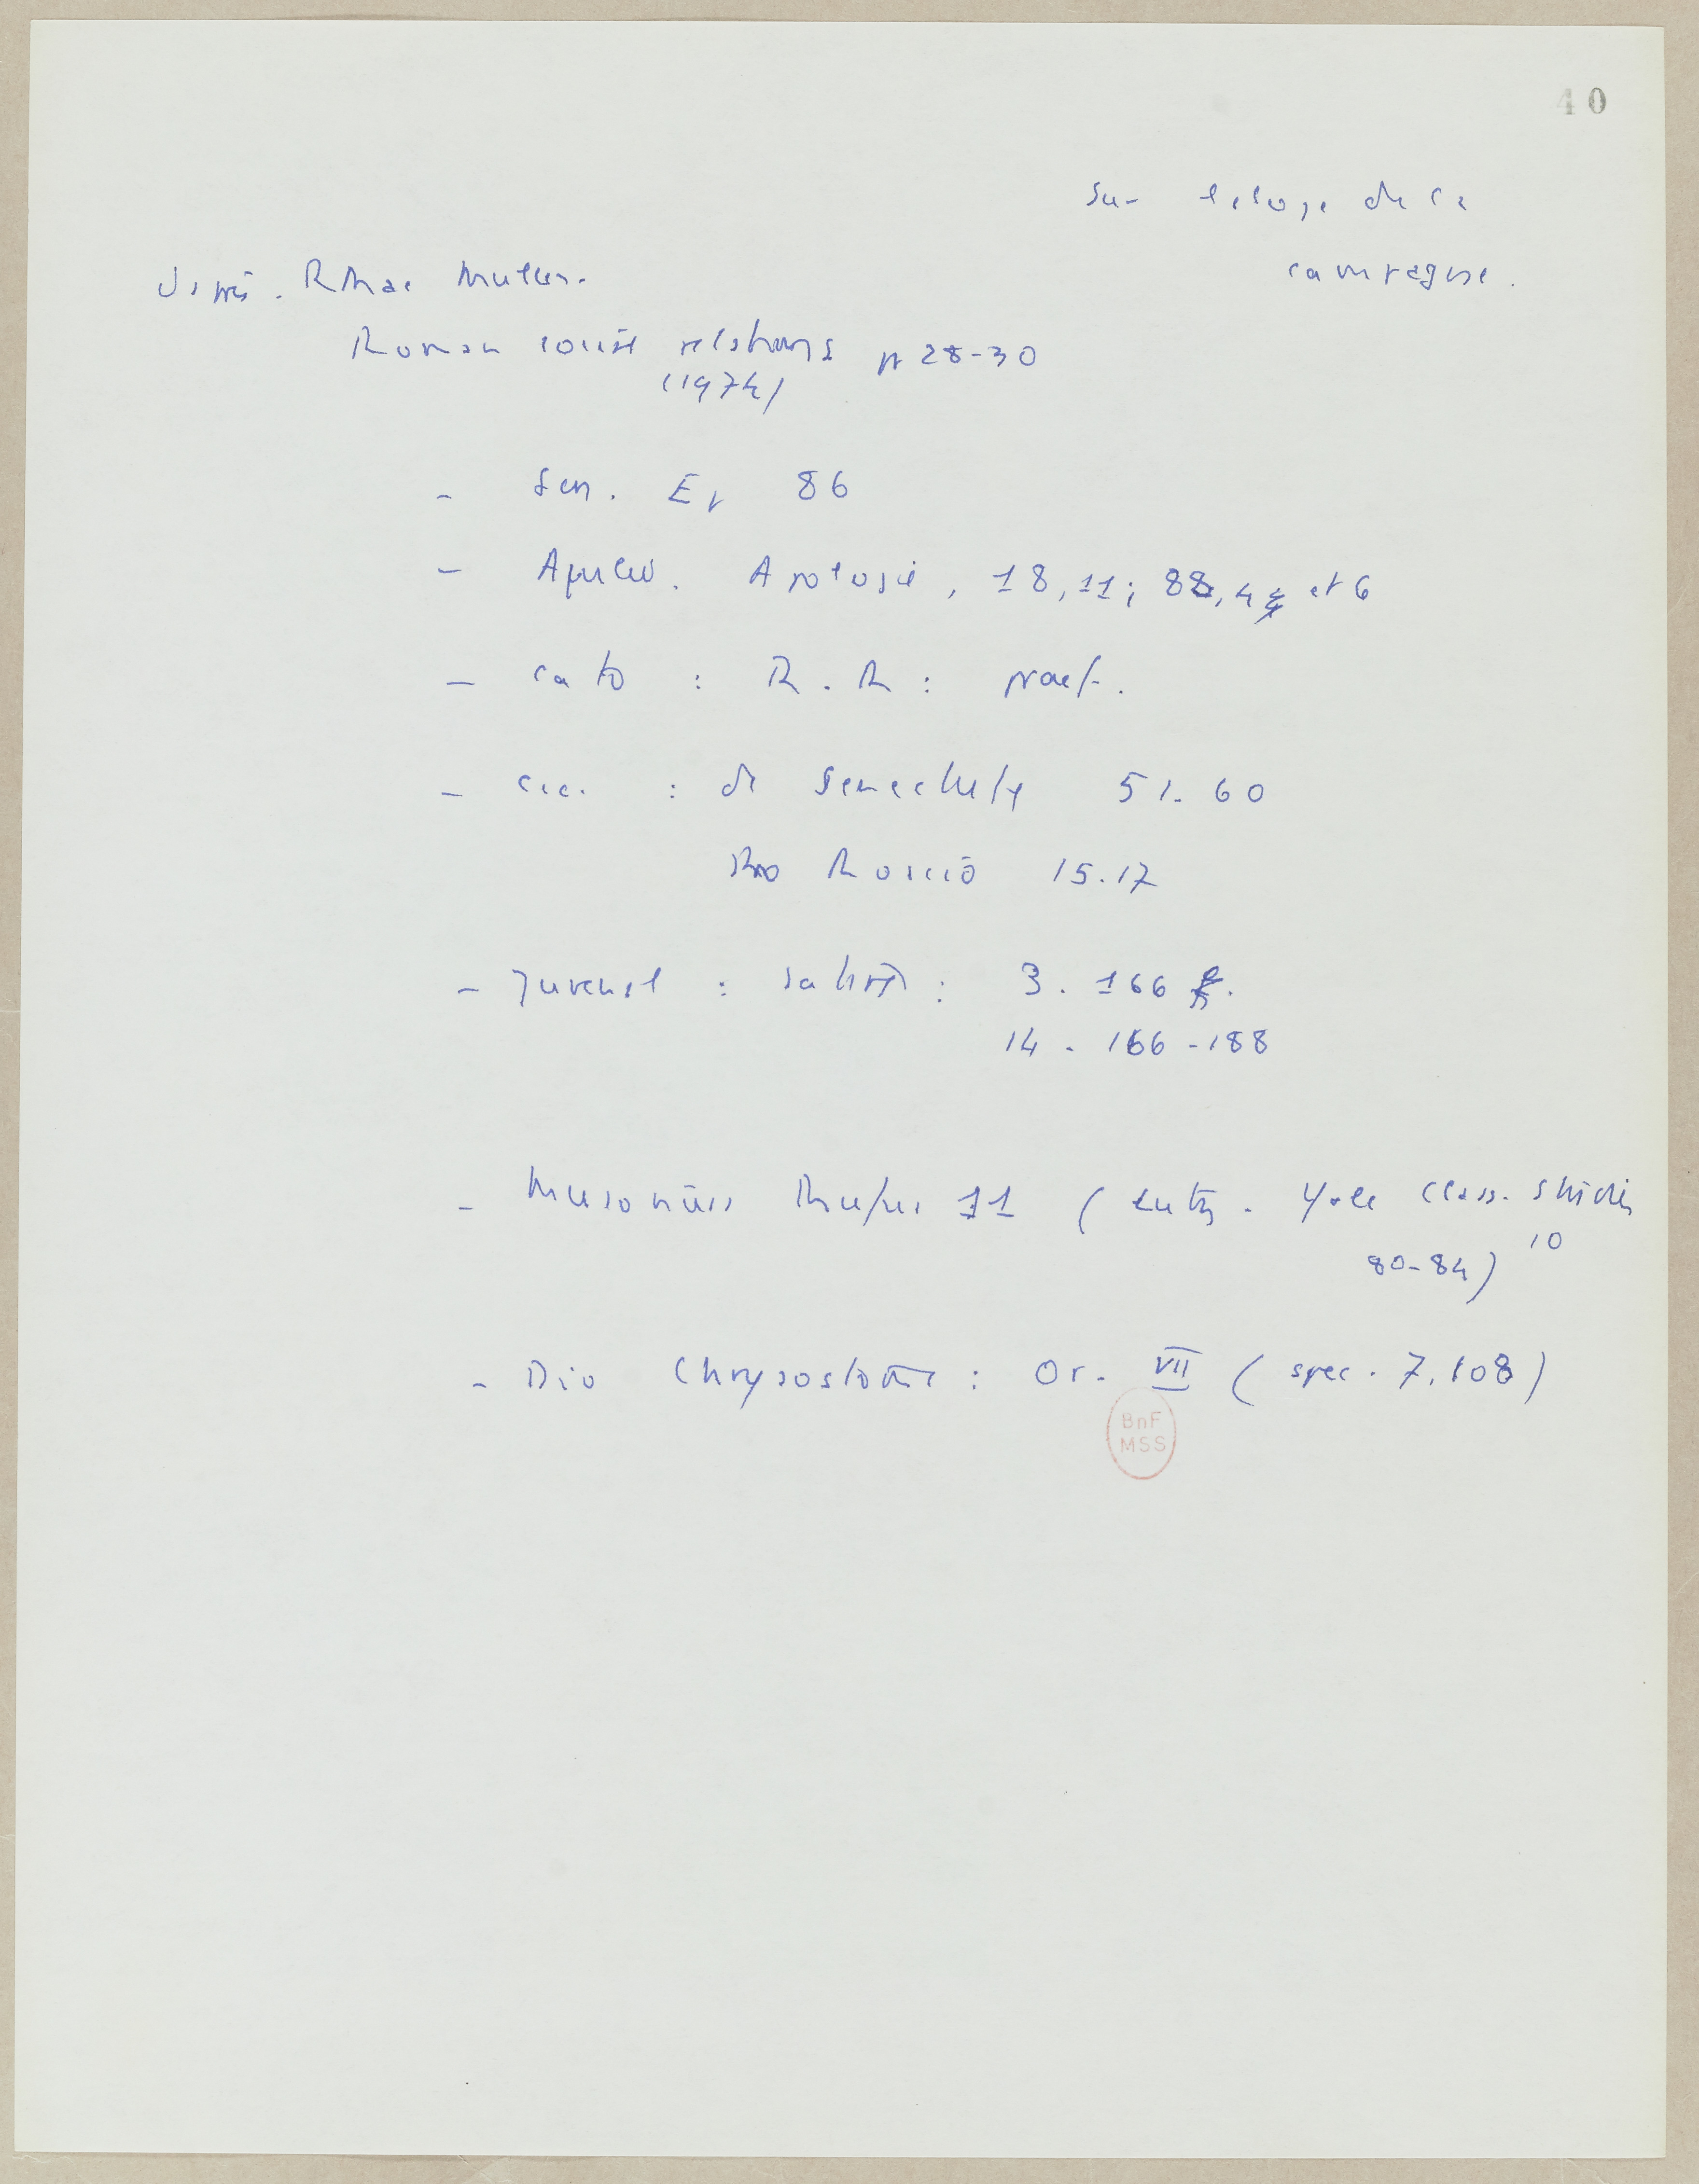 40
Sur l'eloge de la
campagne.
d'après. R Mac Mullen.
Roman social relations p 28-30
(1974)
- Sen. Ep 86
- Apulée. Apologie, 18,11; 88,4 et 6
- Cato : R.R : praef.
- Cic. : de Senectute 51.60
Pro Roscio 15.17
- Juvenal : Satires : 3. 166
14. 166-188
- Musonius Rufus 11 (Lutz. Yale Class. Studies
10
80-84)
- Dio Chrysostome : Or. VII (spec. 7.108)
BnF
MSS